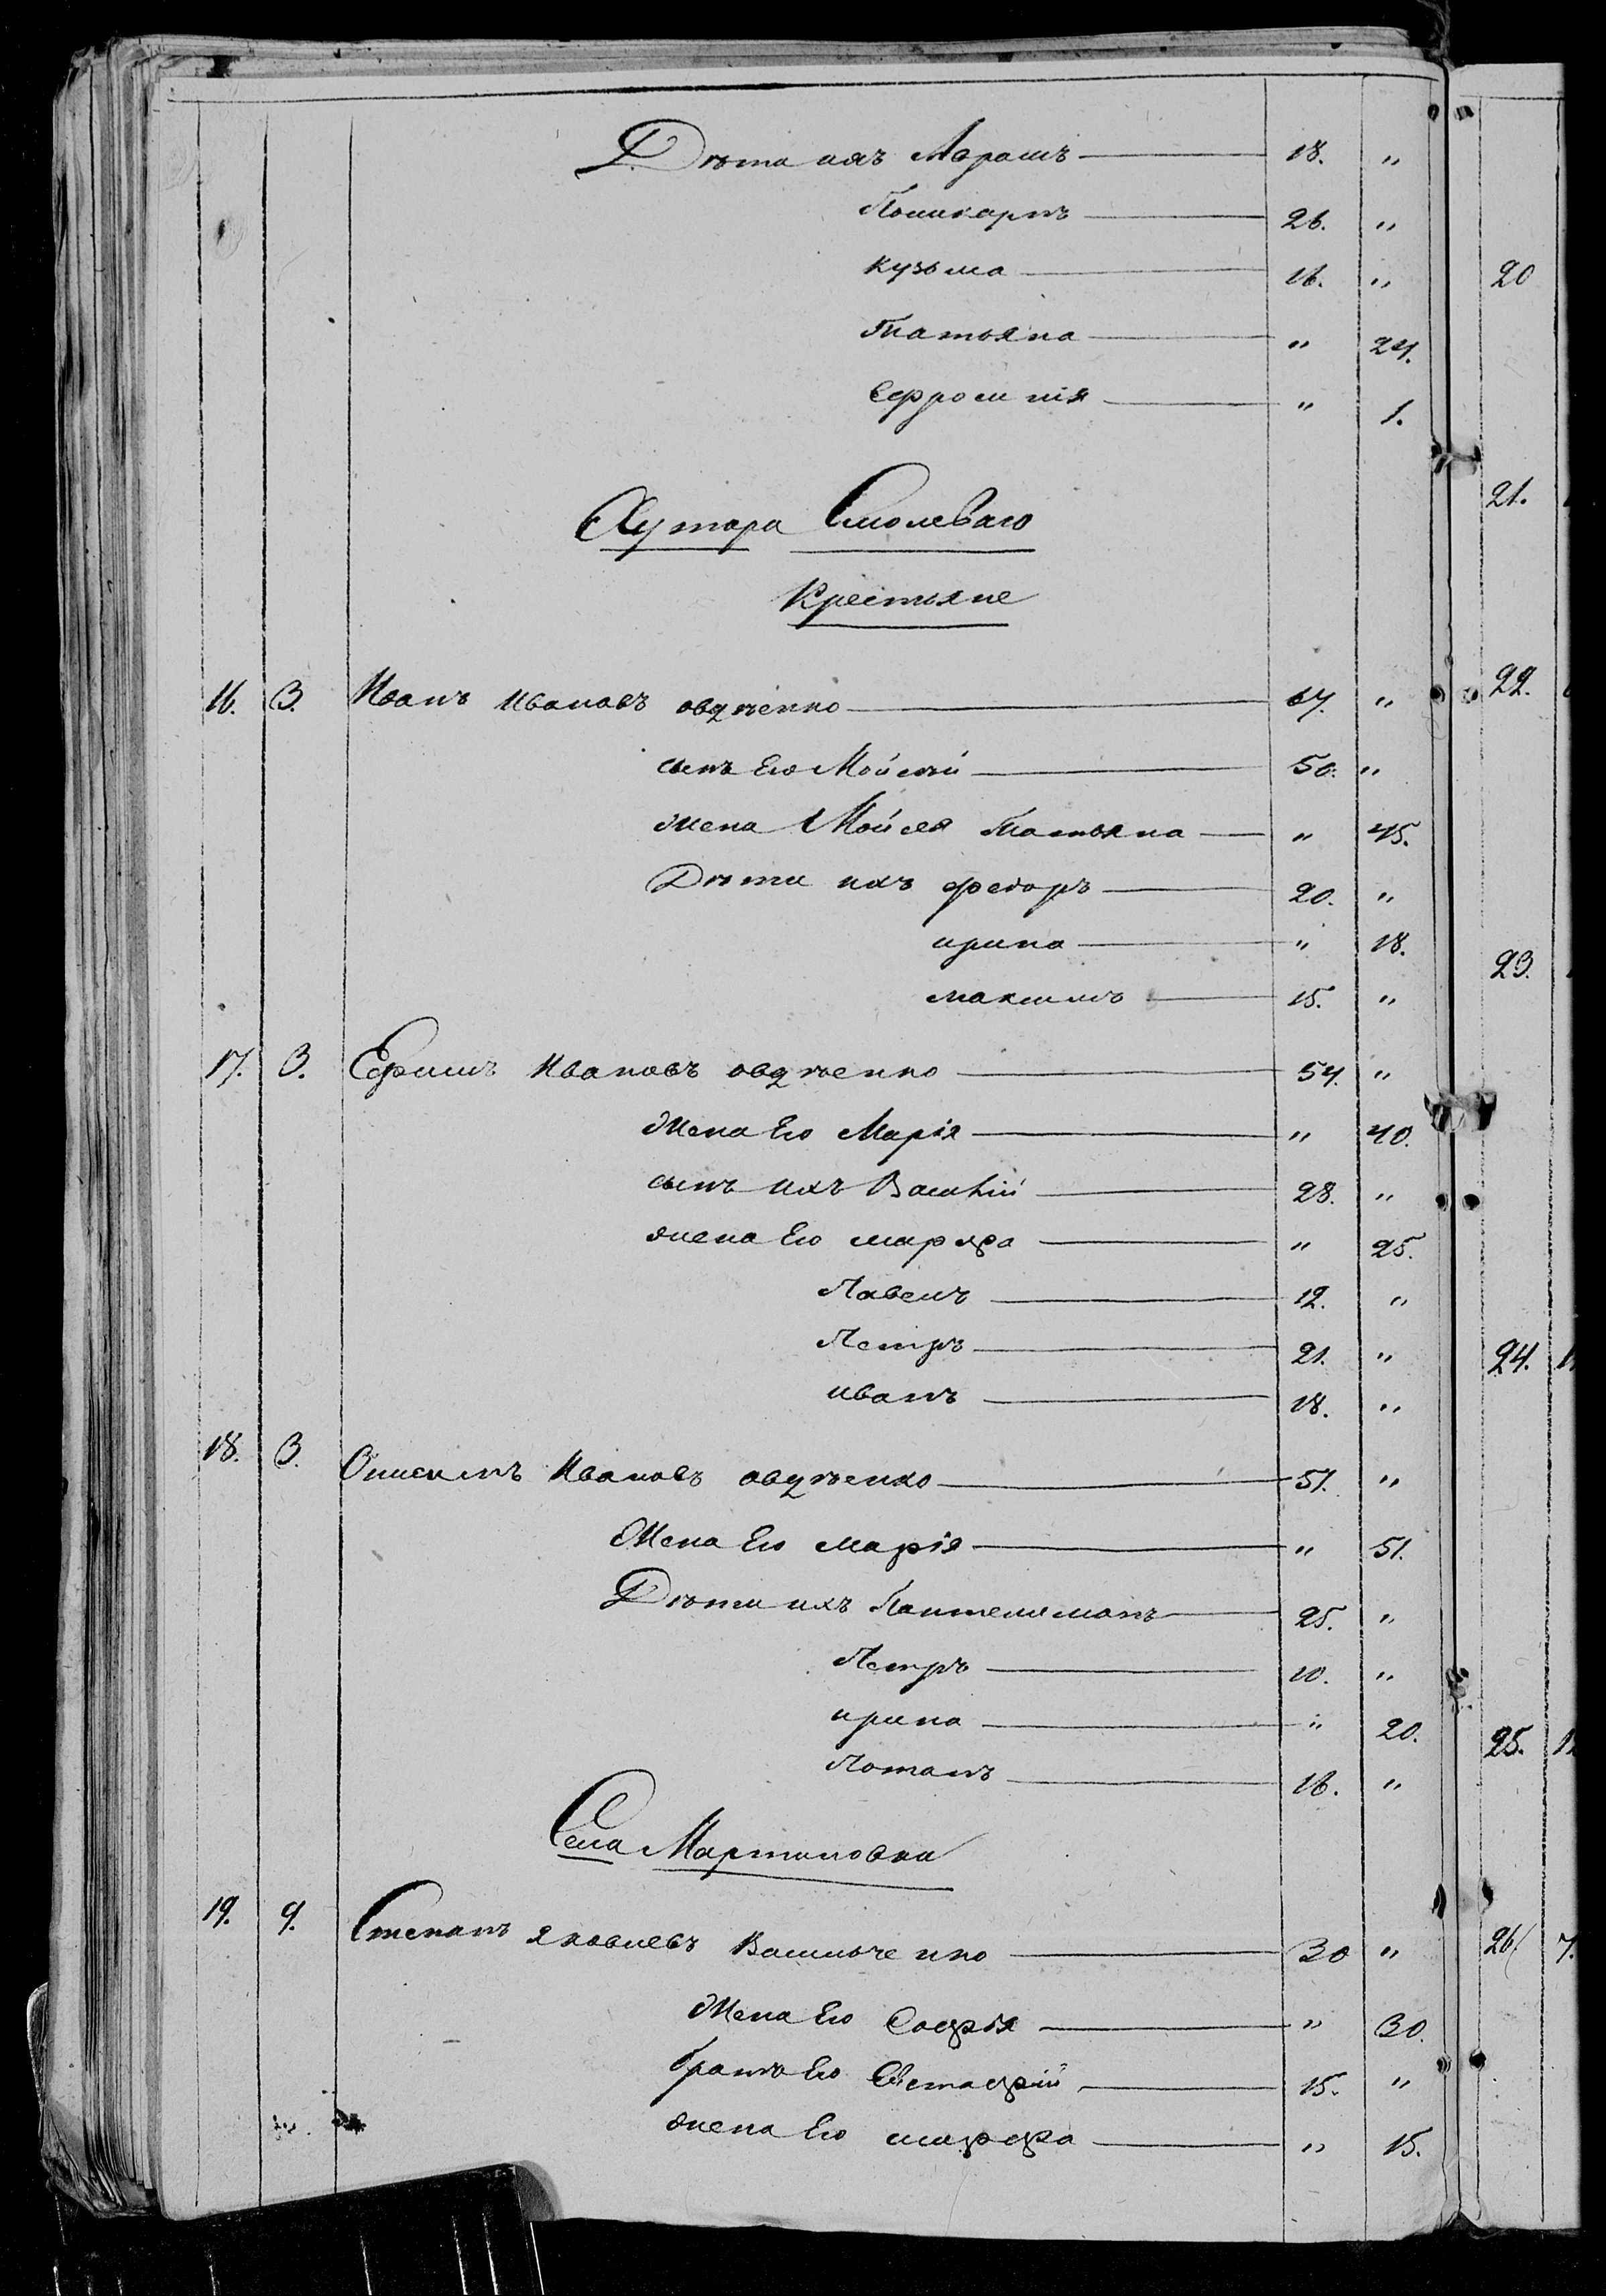 Дѣти ихъ Абрамъ — 18. "
Поликарпъ — 26. "
Кузьма — 16. "
Татьяна — " 24.
Ефросинія — " 1.
Хутора Смолеваго
Крестьяне
16. 3. Иванъ Ивановъ Овдѣенко — 67. "
сынъ Его Мойсѣй — 50. "
Жена Мойсея Татьяна — " 45.
Дѣти ихъ Федоръ — 20. "
ирина — " 18.
максимъ — 15. "
17. 3. Ефимъ Ивановъ овдѣенко — 54. "
Жена Его Марія — " 40.
сынъ ихъ Василій — 28. "
жена Его марфа — " 25.
Павелъ — 12. "
Петръ — 21. "
иванъ — 18. "
18. 3. Онисимъ Ивановъ овдѣенко — 51. "
Жена Его марія — " 51.
Дѣти ихъ Пантелимонъ — 25. "
Петръ — 10. "
ирина — " 20.
Потапъ — 16. "
Села Мартиновка
19. 9. Степанъ Яковлевъ Васильченко — 30 "
Жена Его Софія — " 30.
братъ Его Евстафій — 15. "
жена Его марфа — " 15.
20
21.
22.
23.
24.
25.
26. 7.